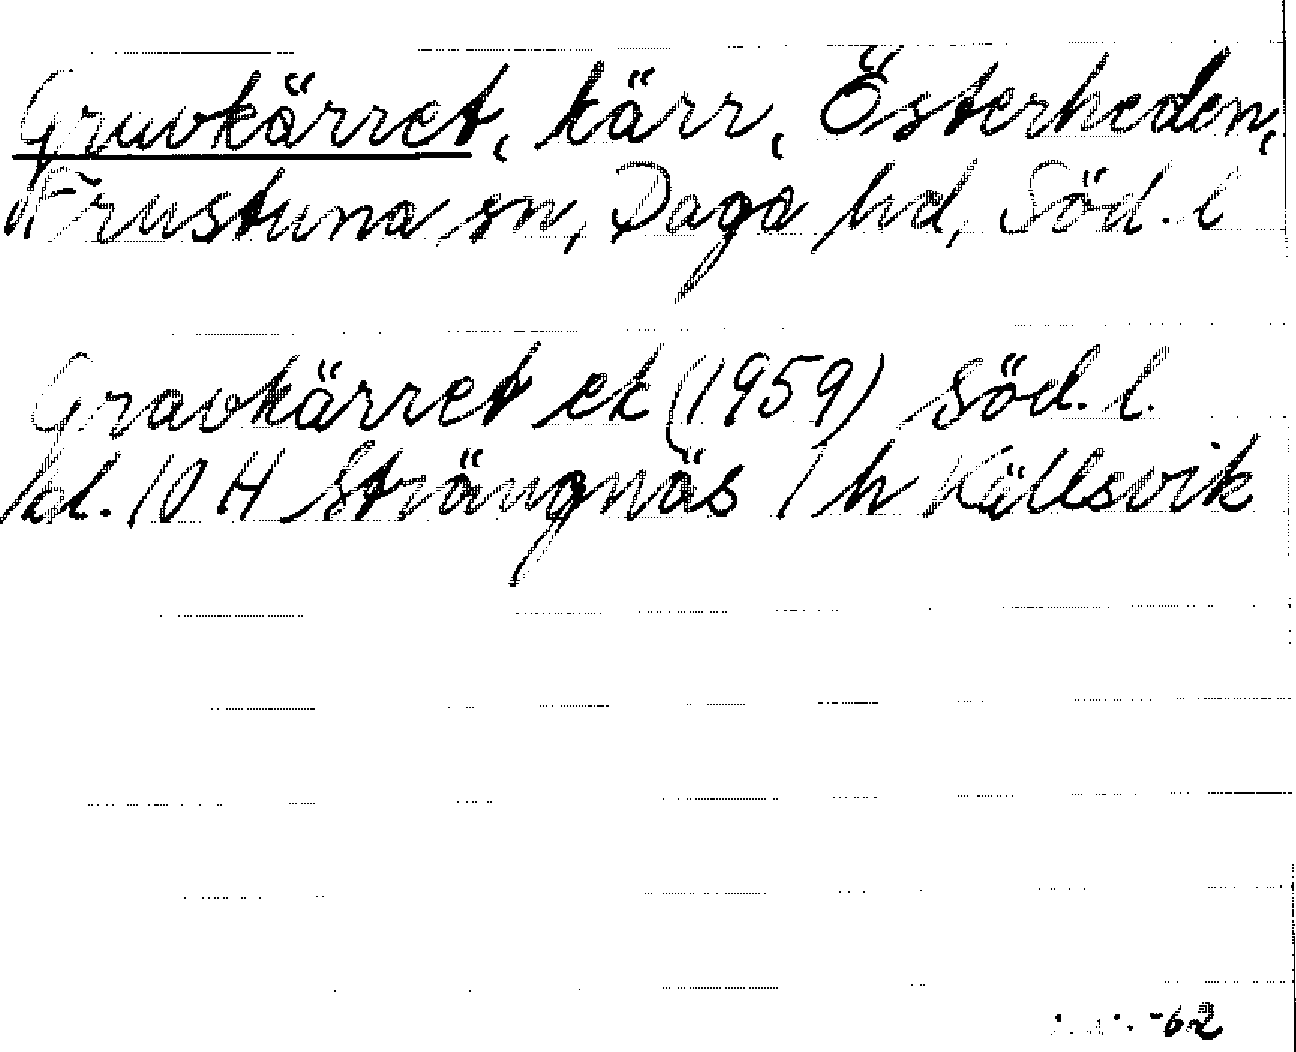 Gruvkärret, kärr, Österheden,
Frustuna sn, Daga hd, Söd. l
Gravkärret ek (1959) Söd. l.
bl. 10 H Strängnäs 1 h Källsvik
-62